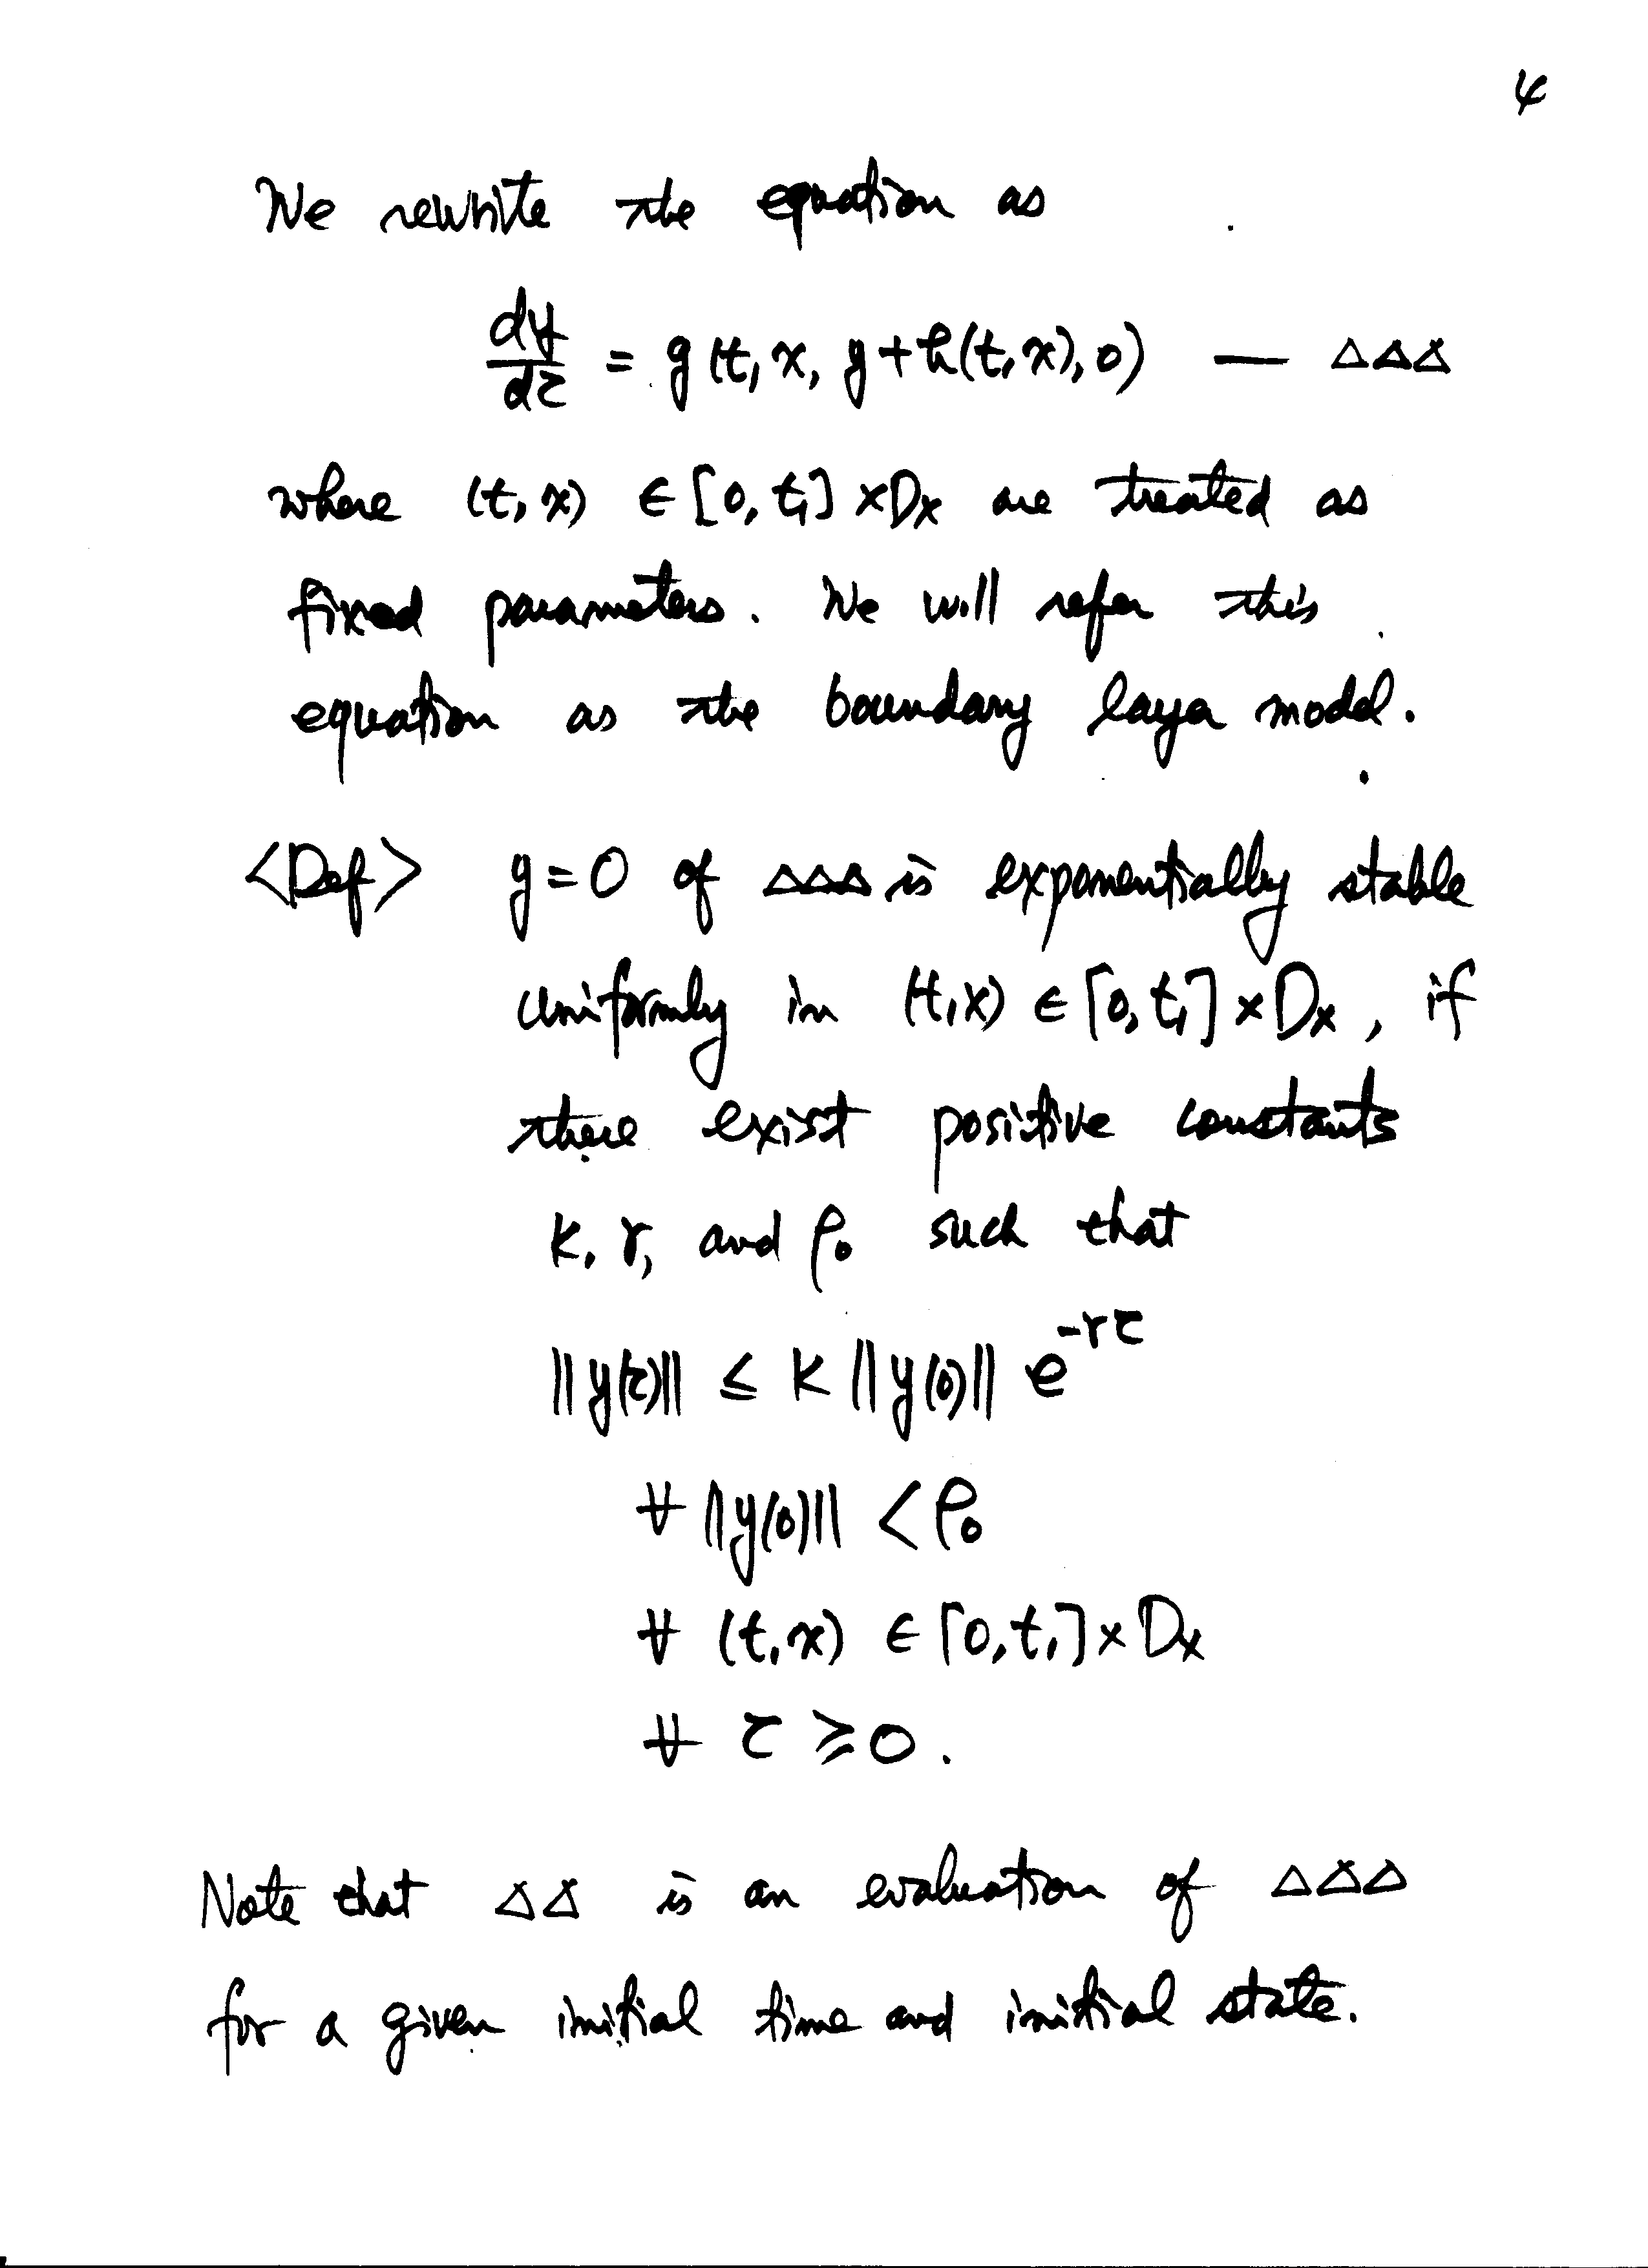 4
We rewrite the equation as
dy/dτ = g(t, x, y+h(t,x), 0) — △△△
where (t, x) ∈ [0, t₁] × Dx are treated as
fixed parameters. We will refer this
equation as the boundary layer model.
<Def> y=0 of △△△ is exponentially stable
uniformly in (t,x) ∈ [0, t₁] × Dx, if
there exist positive constants
k, γ, and ρ₀ such that
||y(τ)|| ≤ k ||y(0)|| e^{-γτ}
∀ ||y(0)|| < ρ₀
∀ (t,x) ∈ [0,t₁] × Dx
∀ τ ≥ 0.
Note that △△ is an evaluation of △△△
for a given initial time and initial state.